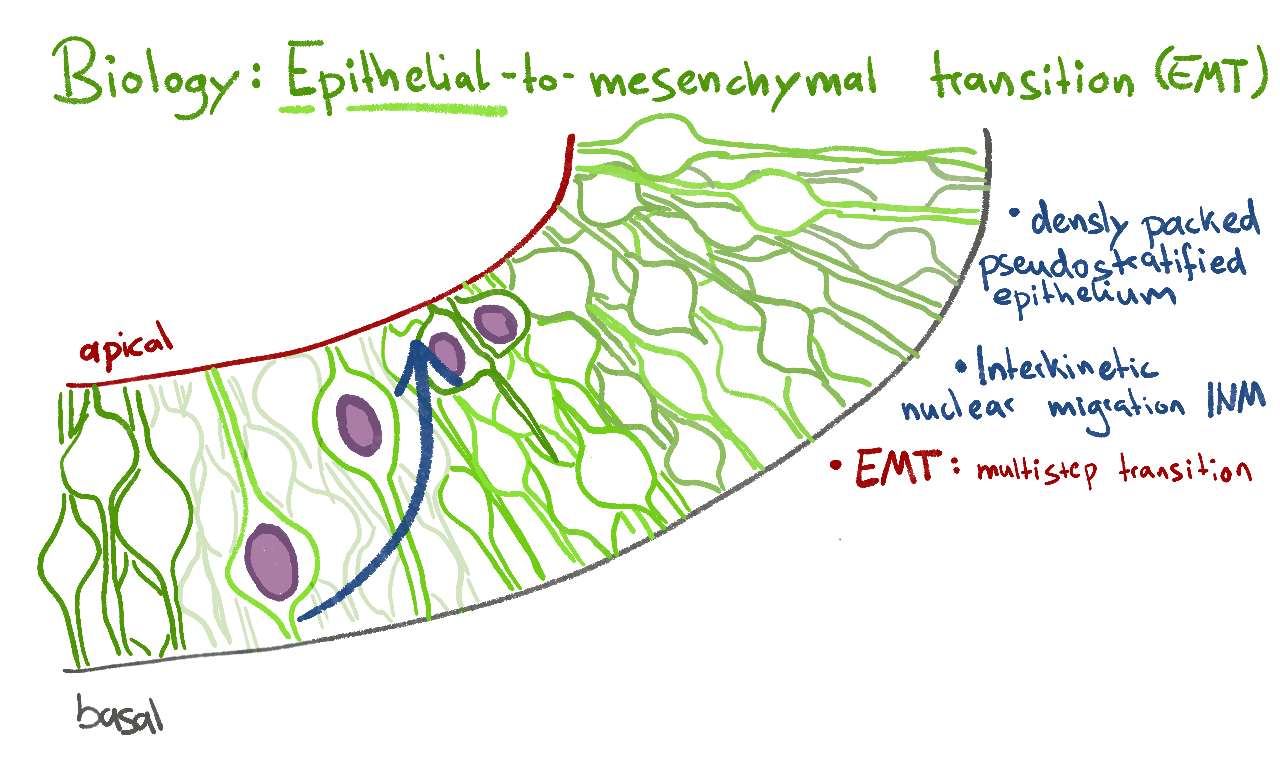 Biology: Epithelial-to-mesenchymal transition (EMT)
• densly packed
pseudostratified
epithelium
apical
• Interkinetic
nuclear migration INM
• EMT: multistep transition
basal